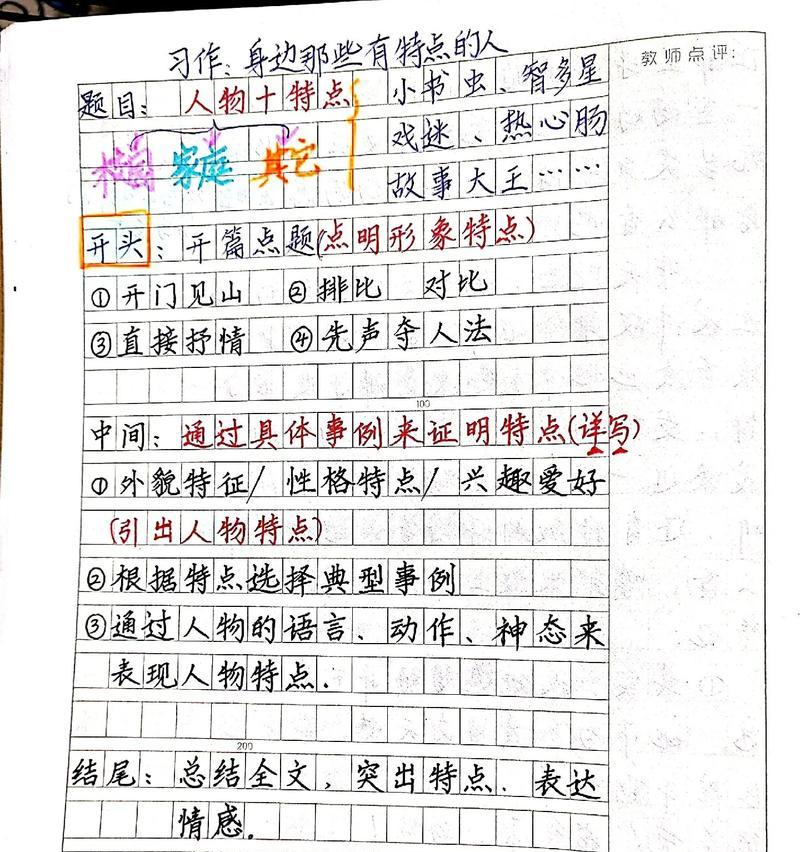 习作：身边那些有特点的人
教师点评：
题目：人物+特点
小书虫、智多星
戏迷、热心肠
校园 家庭 其它
故事大王……
开头：开篇点题(点明形象特点)
①开门见山 ②排比 对比
③直接抒情 ④先声夺人法
100
中间：通过具体事例来证明特点(详写)
①外貌特征/性格特点/兴趣爱好
(引出人物特点)
②根据特点选择典型事例
③通过人物的语言、动作、神态来
表现人物特点.
200
结尾：总结全文，突出特点.表达
情感.